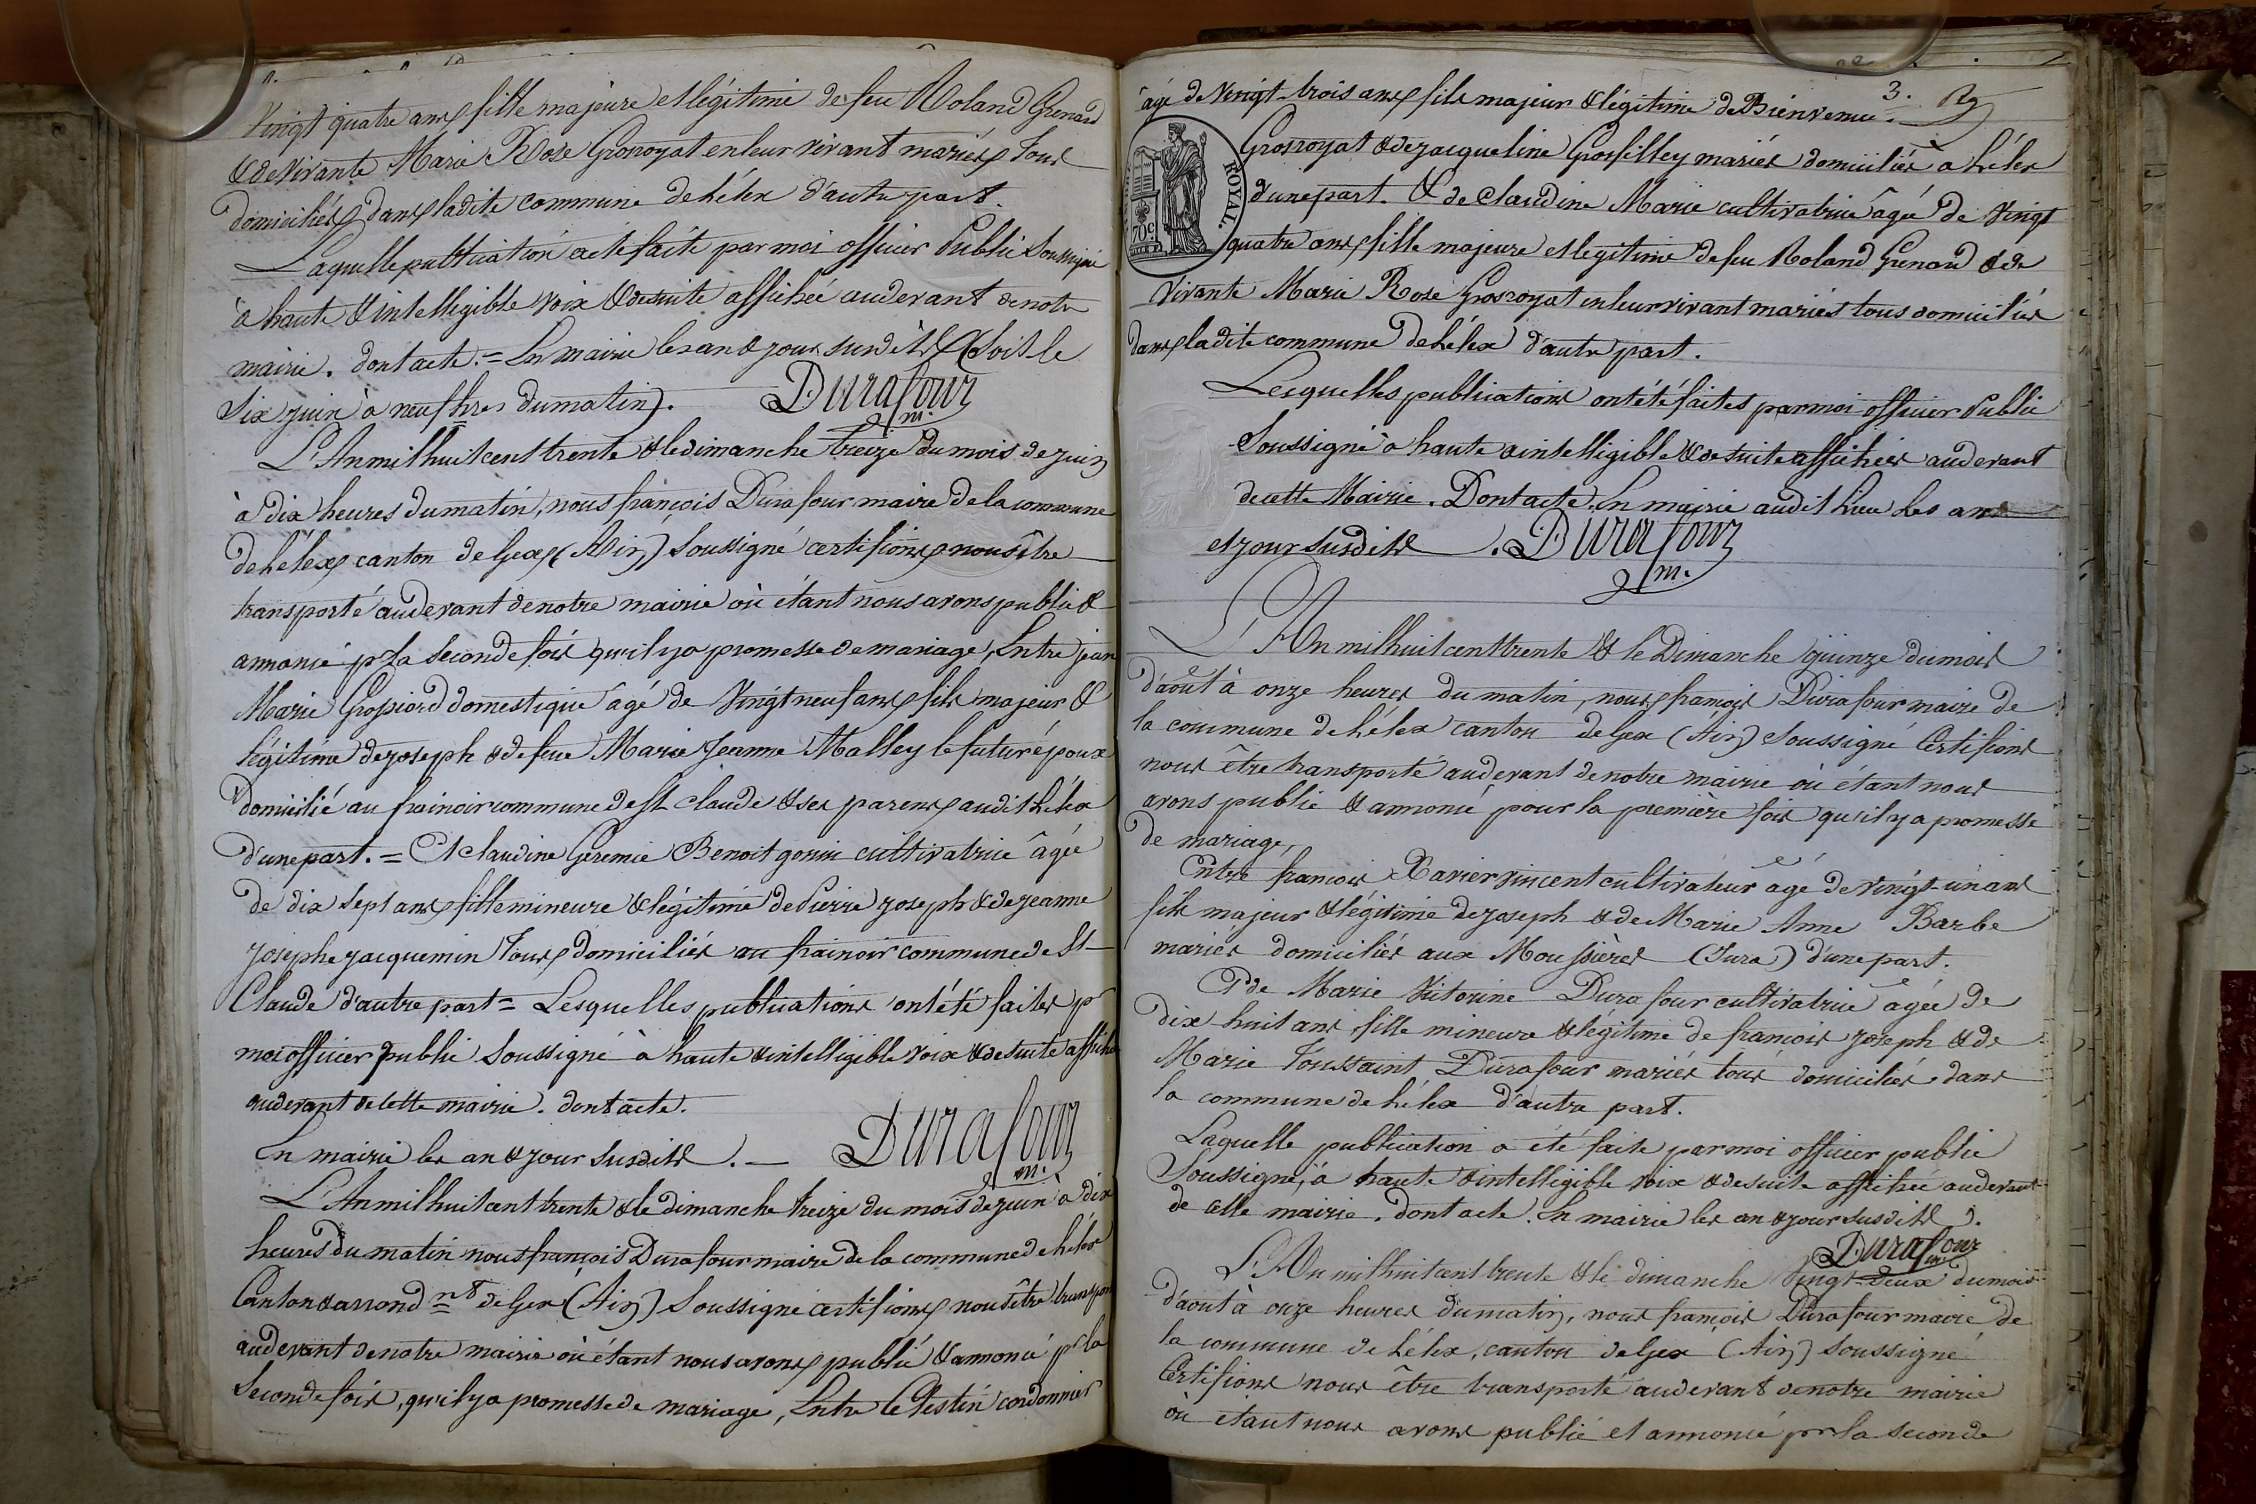 Vingt quatre ans fille majeure et légitime de feu Roland Grenard
& de vivante Marie Rose Grosroyat en leur vivant mariés tous
domiciliés dans ladite commune de Lélex d'autre part.
Laquelle publication a été faite par moi officier Public Soussigné
à haute & intelligible voix & de suite affichée au devant de notre
mairie. dont acte. = En mairie les an & jour susdits (Soit le
Six juin à neuf hres du matin).
Durafour
m.
L'An mil huit cent trente & le dimanche treize du mois de juin
à dix heures du matin, nous françois Durafour maire de la commune
de Lélex canton de Gex (Ain) Soussigné certifions nous être
transporté au devant de notre mairie où étant nous avons publié &
annoncé pr la Seconde fois qu'il y a promesse de mariage, Entre jean
Marie Grospiord domestique âgé de Vingt neuf ans fils majeur &
légitime de joseph & de feue Marie Jeanne Malley le futur époux
domicilié au frainoir commune de St Claude & ses parens audit Lélex
d'une part. = Et claudine Geremie Benoit gonin cultivatrice âgée
de dix sept ans fille mineure & légitime de Pierre joseph & de jeanne
josephe jacquemin Tous domiciliés au frainoir commune de St
Claude d'autre part = Lesquelles publications ont été faites pr
moi officier public Soussigné à haute & intelligible voix & de suite affichée
au devant de cette mairie. dont acte.
En mairie les an & jour susdits. —
Durafour
m.
L'An mil huit cent trente & le dimanche treize du mois de juin à dix
heures du matin nous françois Durafour maire de la commune de Lélex
Canton & arrond nt de Gex (Ain) Soussigné certifions nous être transporté
au devant de notre mairie où étant nous avons publié & annoncé pr la
Seconde fois, qu'il y a promesse de mariage, Entre Celestin cordonnier
3.
âgé de Vingt-trois ans fils majeur & légitime de Bienvenue
Grosroyat & de jacqueline Grosfilley mariés domiciliés à Lélex
d'une part. & de Claudine Marie cultivatrice âgée de Vingt
quatre ans fille majeure et légitime de feu Roland Grenard & de
Vivante Marie Rose Grosroyat en leur vivant mariés tous domiciliés
dans la dite commune de Lélex d'autre part.
ROYAL.
70c
Lesquelles publications ont été faites par moi officier Public
Soussigné à haute & intelligible & de suite affichées au devant
de cette Mairie. Dont acte. En mairie audit Lieu Les ans
et jour susdits.
Durafour
m.
L'An mil huit cent trente & le Dimanche quinze du mois
d'août à onze heures du matin, nous françois Durafour maire de
la commune de Lélex canton de Gex (Ain) Soussigné Certifions
nous être transporté au devant de notre mairie où étant nous
avons publié & annoncé pour la première fois qu'il y a promesse
de mariage,
Entre françois Xavier vincent cultivateur âgé de vingt-un ans
fils majeur & légitime de joseph & de Marie Anne Barbe
mariés domiciliés aux Moussières (Jura) d'une part.
Et de Marie Victorine Durafour cultivatrice âgée de
dix huit ans fille mineure & légitime de françois joseph & de
Marie Toussaint Durafour mariés tous domiciliés dans
la commune de Lélex d'autre part.
Laquelle publication a été faite par moi officier public
Soussigné, à haute & intelligible voix & de suite affichée au devant
de cette mairie. dont acte. En mairie les an & jour susdits.
Durafour
m.
L'An mil huit cent trente & le dimanche Vingt-deux du mois
d'août à onze heures du matin, nous françois Durafour maire de
la commune de Lélex, canton de Gex (Ain) Soussigné
Certifions nous être transporté au devant de notre mairie
où étant nous avons publié et annoncé pour la seconde